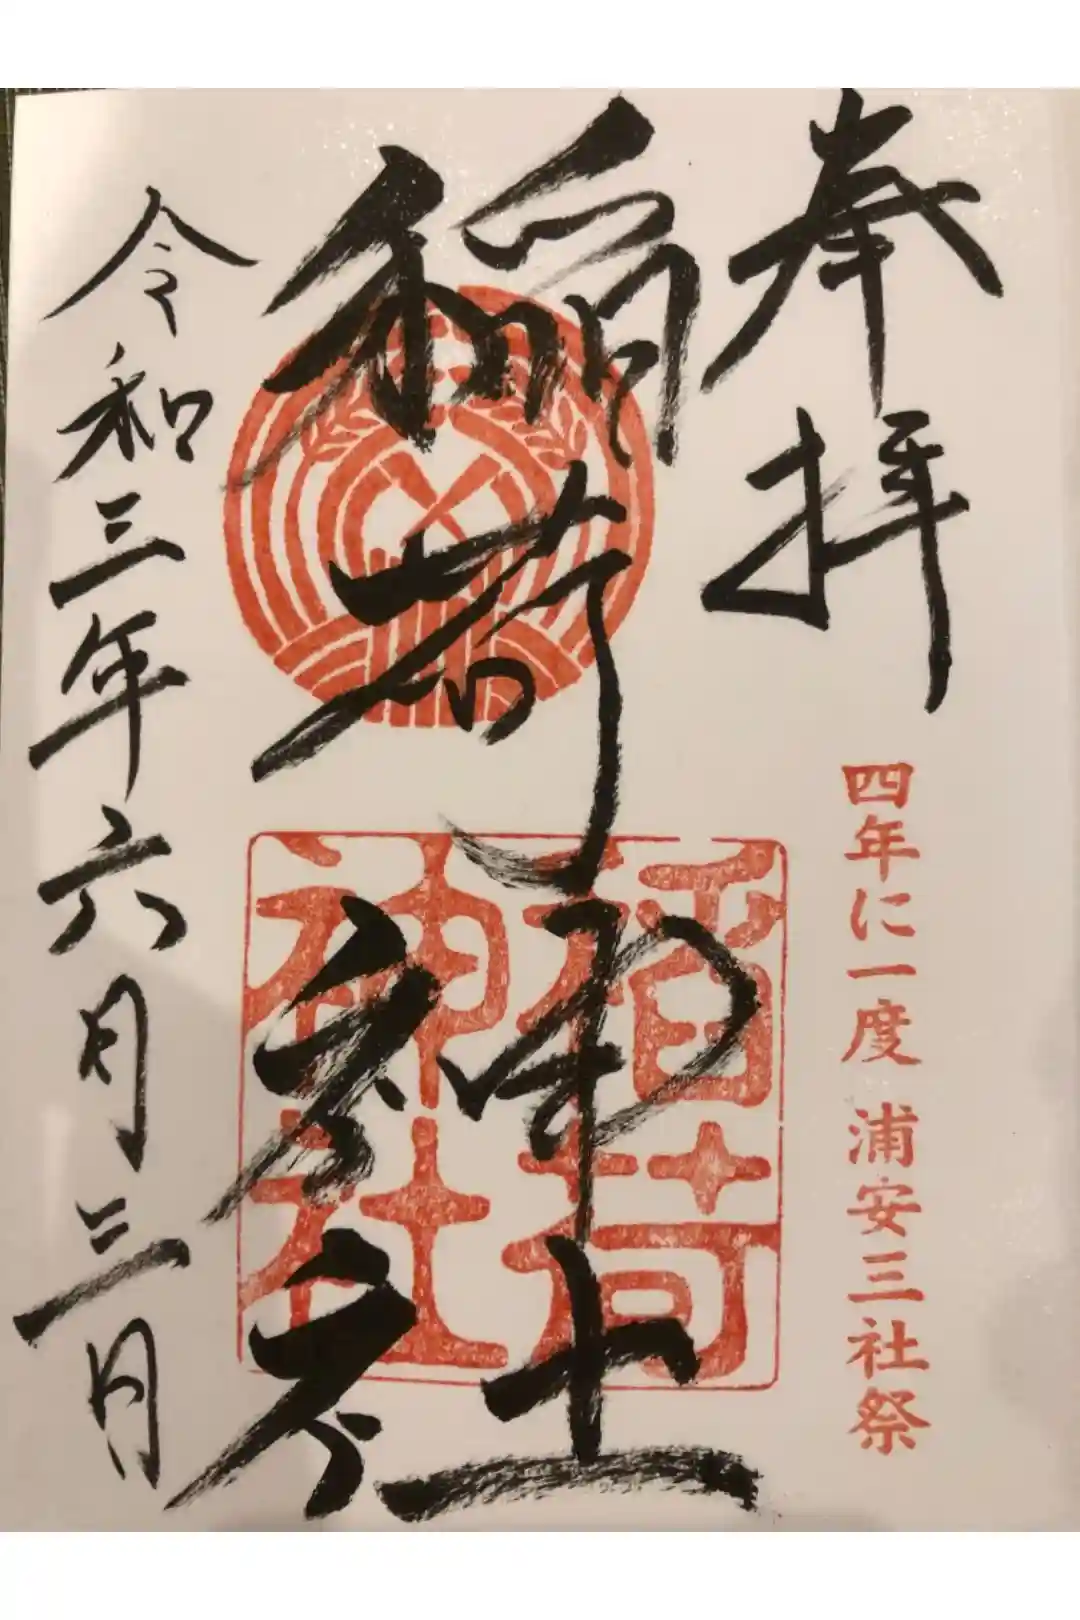 奉拝
四年に一度 浦安三社祭
稲荷神社
稲荷神社
令和三年六月三日